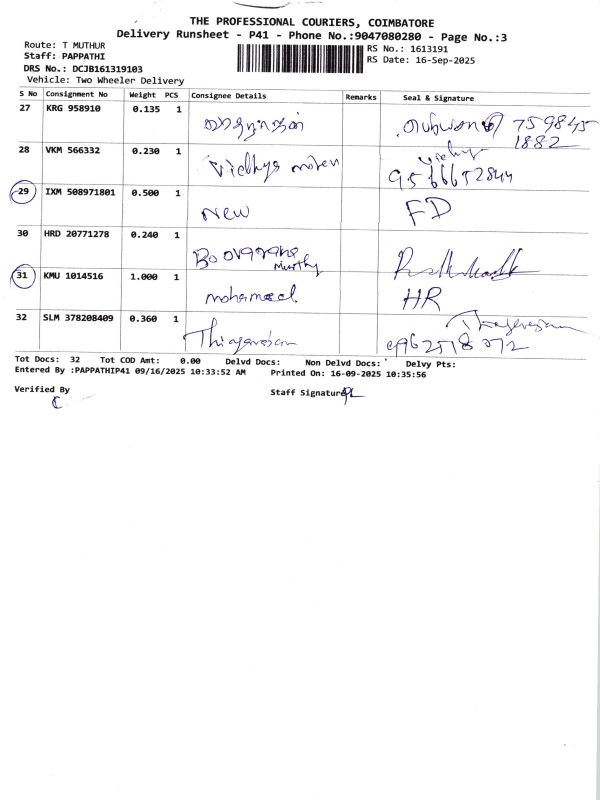 THE PROFESSIONAL COURIERS, COIMBATORE
Delivery Runsheet - P41 - Phone No.:9047080280 - Page No.:3
Route: T MUTHUR
RS No.: 1613191
Staff: PAPPATHI
RS Date: 16-Sep-2025
DRS No.: DCJB161319103
Vehicle: Two Wheeler Delivery
S No Consignment No Weight PCS Consignee Details Remarks Seal & Signature
27 KRG 958910 0.135 1 759845
1882
28 VKM 566332 0.230 1 Vidhya Vidhya
9566652844
29 IXM 508971801 0.500 1 New FD
30 HRD 20771278 0.240 1
Murthy
31 KMU 1014516 1.000 1 mohamed HR
32 SLM 378208409 0.360 1 Thiagarajan
Tot Docs: 32 Tot COD Amt: 0.00 Delvd Docs: Non Delvd Docs: Delvy Pts:
Entered By :PAPPATHIP41 09/16/2025 10:33:52 AM Printed On: 16-09-2025 10:35:56
Verified By Staff Signature